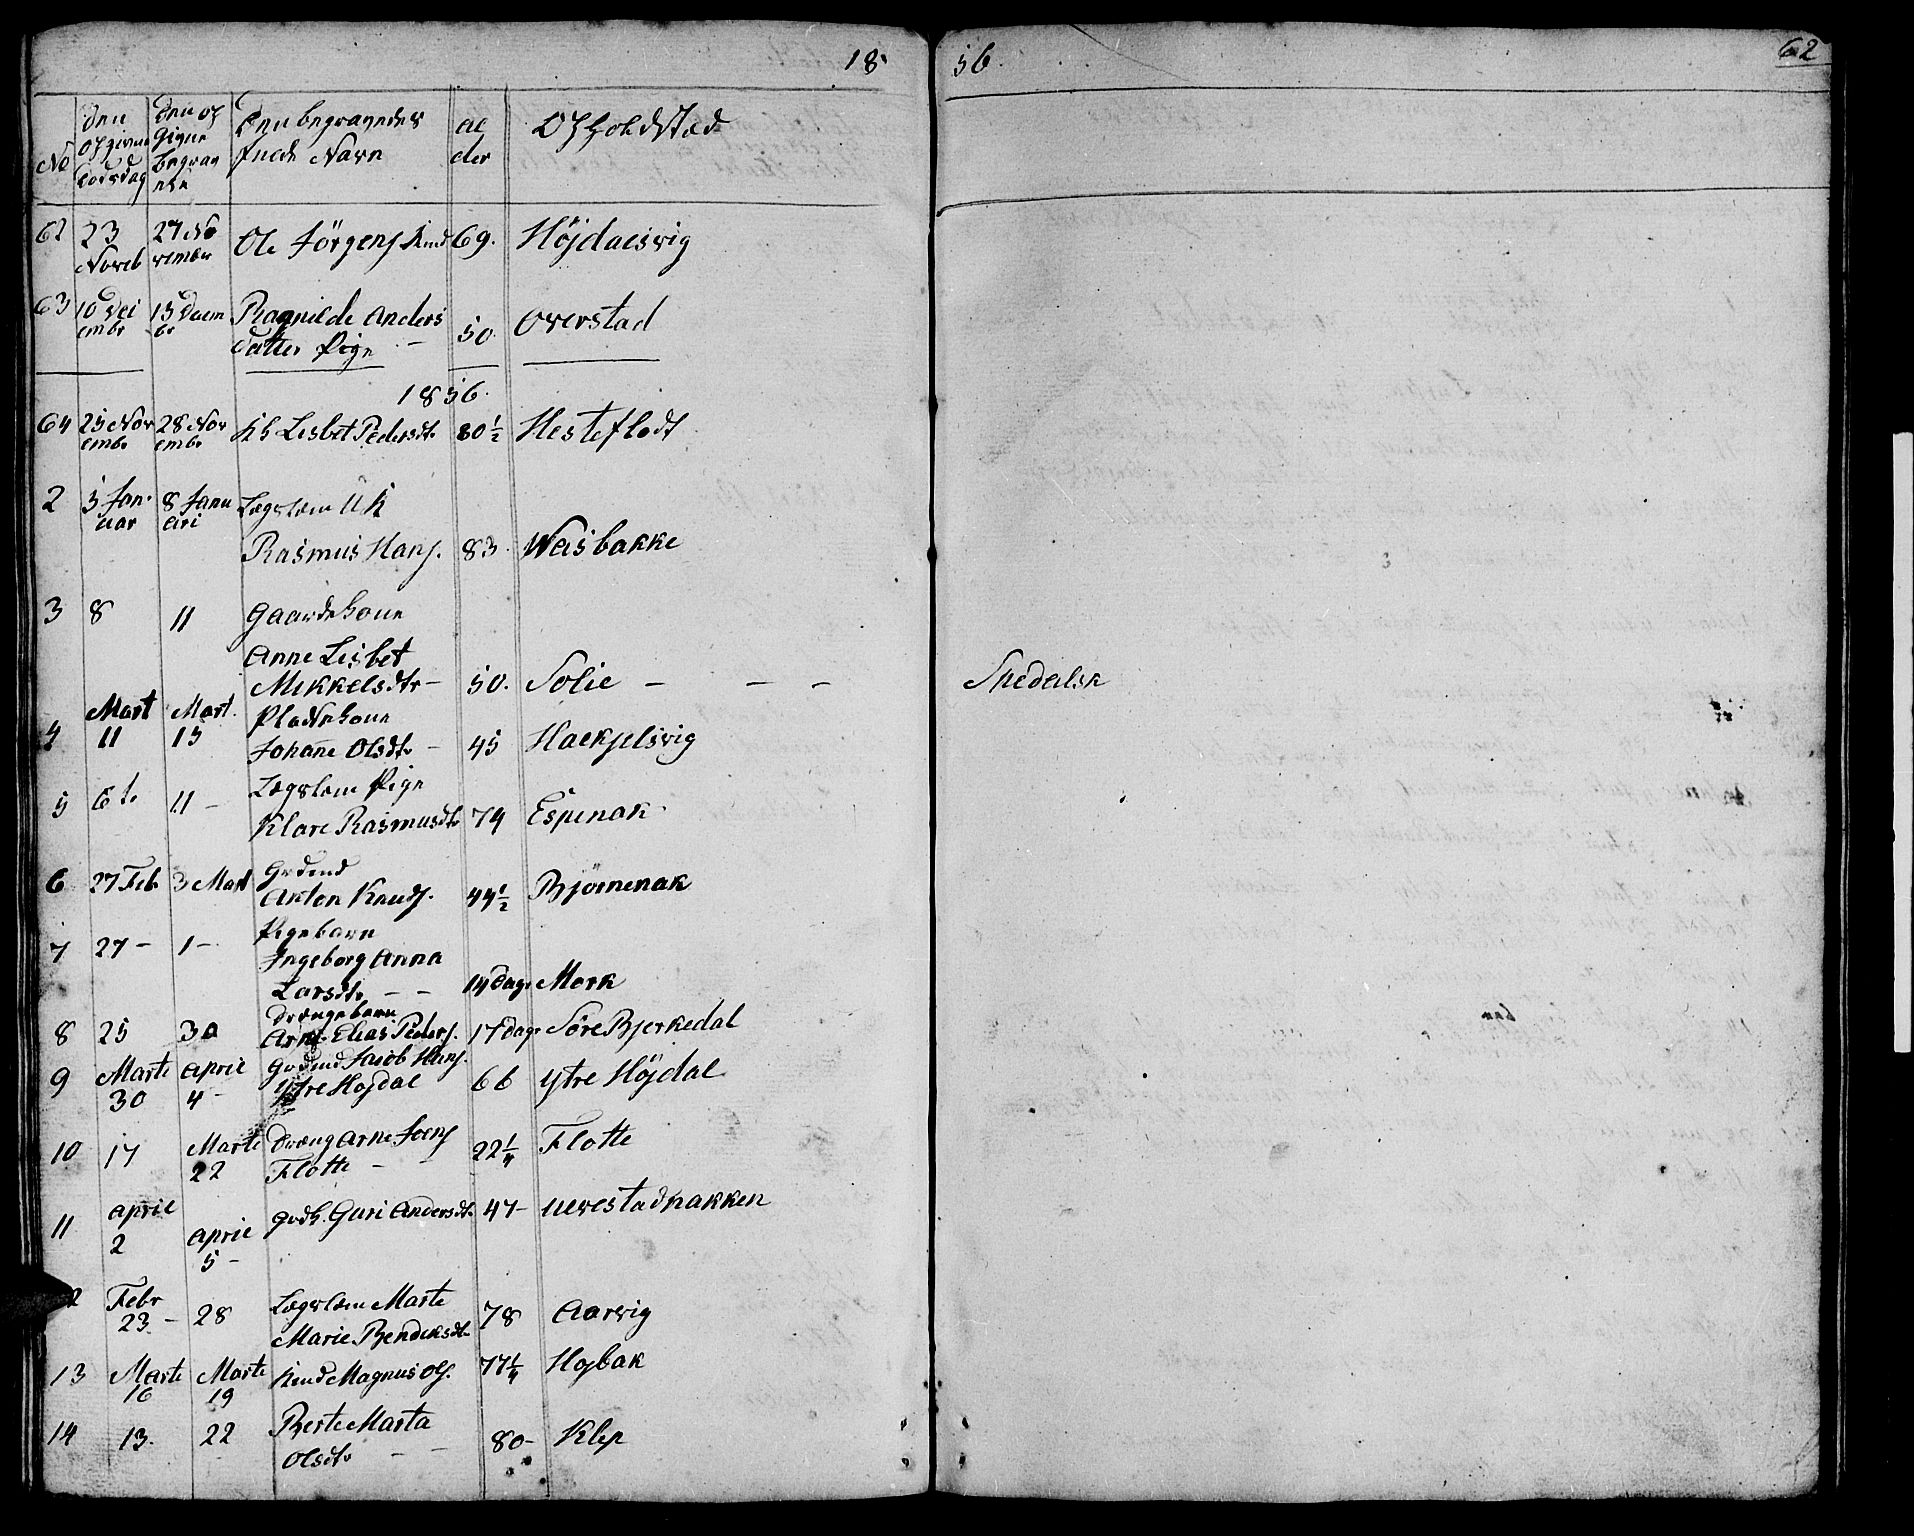 18 56. 62
No den Opgivne Dødsdag den op Givne begravelse Den begravedes fulde Navn al der Opholdsted
62 23 Noveb 27 No vember Ole Jörgens Kmd 69. Höjdalsvig
63 10 Dec embr 15 Decem br Ragnilde Anders
datter Pige - 50. Overstad
1856.
64 25 Nov embr 28 Nov embr Lisbet Pedersdtr 80½ Hesteflodt
2 5 Jan uar 8 Janu ari Lægslem
Rasmus Hans. 83. Weisbakke
3 8 11 Gaardekone
Anne Lisbet
Mikkelsdtr - 50. Solie - - - Stredalen
4 Mart 11 Mart. 15 Pladsekone
Johane Olsdtr - 45 Haekjelsvig
5 6te 11 - Lægslem Pige
Klare Rasmusdtr 74 Espenak
6 27 Feb 3 Mart Grdmd
Anton Knuds. 44½ Bjömenak
7 27 - 1 - Pigebarn
Ingeborg Anna
Larsdtr - - 14 dage Mork
8 25 30 Drængebarn
Arnt Elias Peders. 17 dage Söre Bjerkedal
9 Marti 30 April 4 - Grdmd Jacob Hans.
Ytre Hojdal 66 Ytre Höjdal
10 17 Marti 22 Dræng Arne Joens
Flotte - - 22¼ Flotte
11 April 2 April 5 - Grdk. Guri Andersdtr 47 - Uverstadnakken
12 Febr 23 - 28 Lægslem Marte
Marie Bendiksdtr 78 Aarvig
13 Marti 16 Marti 19 Kmd Magnus Ols. 77¼ Hojbak
14 13. 22 Berte Marta
Olsdtr - - 80 - Klep